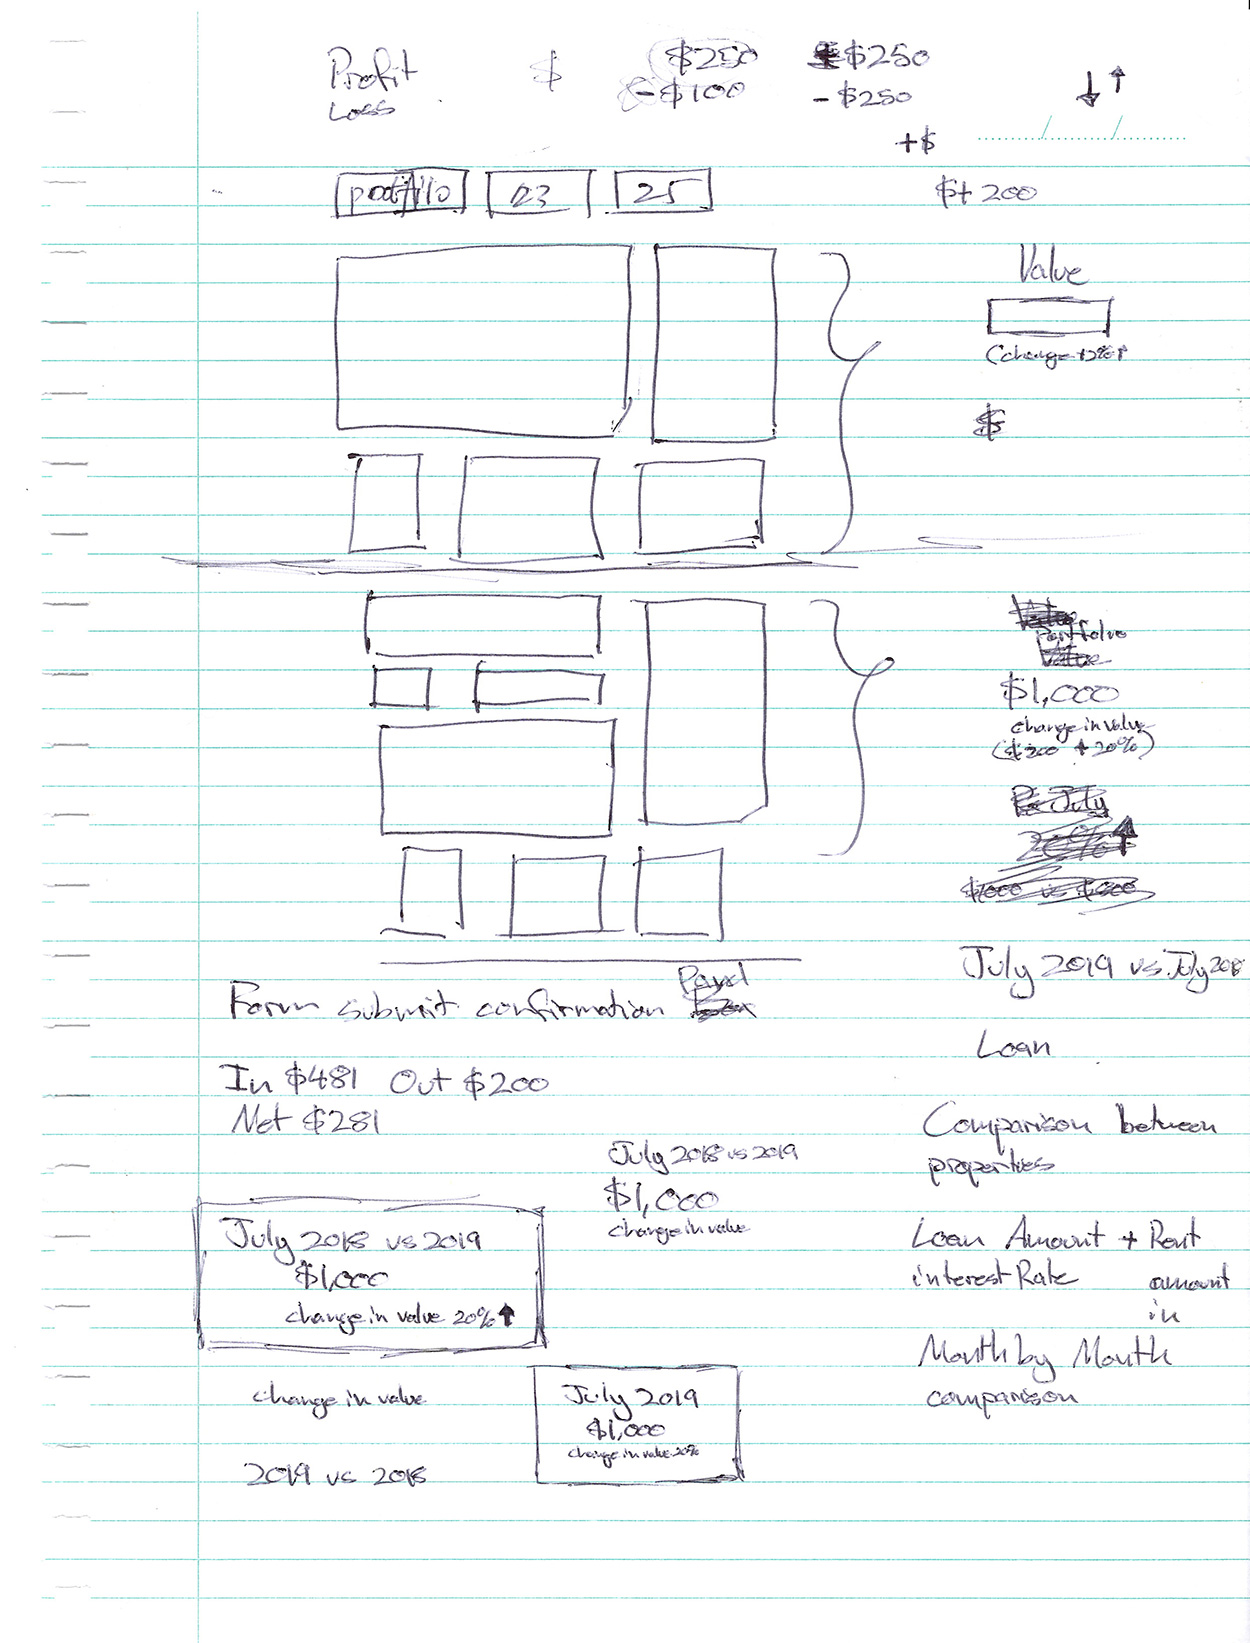 Profit
Loss
$
$250
- $100
$250
- $250
+$
$+ 200
23
25
Value
(change +2%↑
$
Portfolio
$1,000
change in value
($200 + 20%)
July
20% ↑
July 2019 vs. July 2018
Form submit confirmation Panel
Loan
In $481 Out $200
Net $281
Comparison between
properties
July 2018 vs 2019
$1,000
change in value
July 2018 vs 2019
$1,000
change in value 20% ↑
Loan Amount + Rent
interest Rate amount
in
Month by Month
comparison
change in value
July 2019
$1,000
change in value 20%
2019 vs 2018